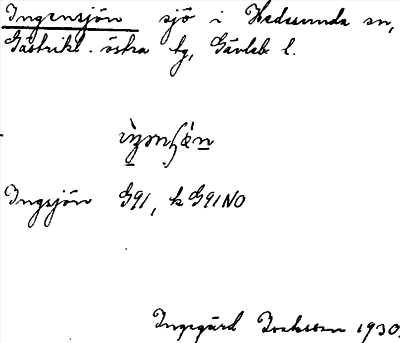 Ingensjön sjö i Hedesunda sn,
Gästrikl. östra tg, Gävleb l.
Ingsjön G91, k G91NO
Ingegärd Isaksson 1930.